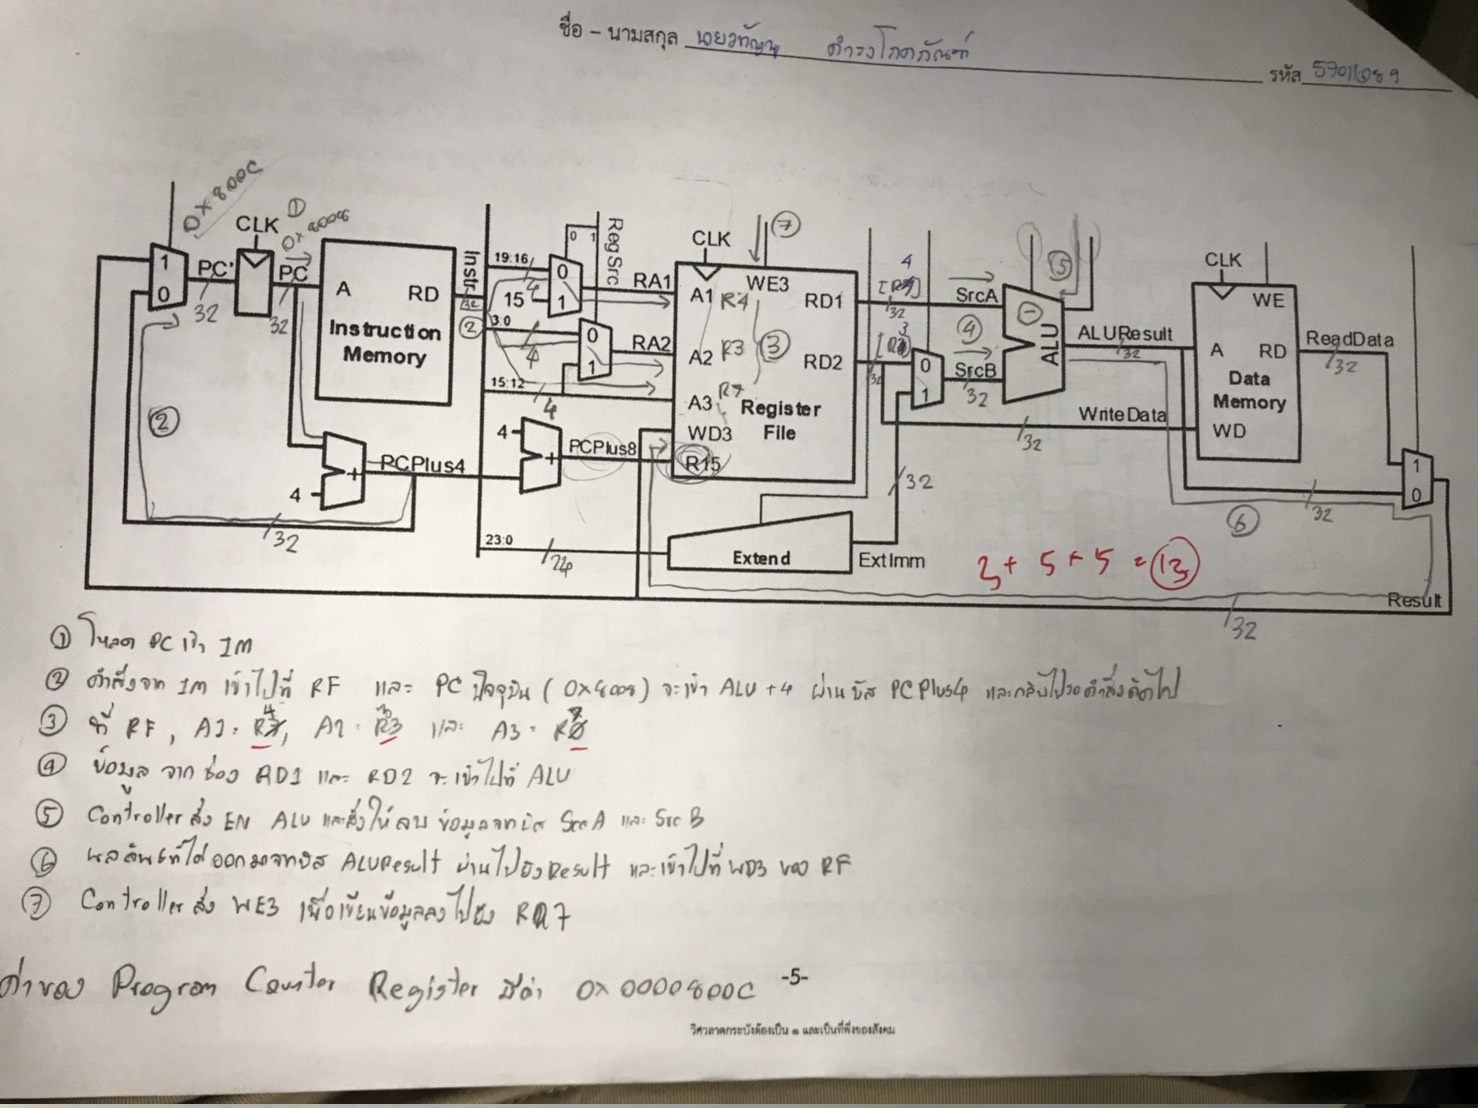 ชื่อ – นามสกุล
รหัส 57011089
0x800C
①
CLK
0x8008
PC'
PC
1
0
32
32
A
RD
Instruction
Memory
Instr
32
②
19:16
4
15
0
1
0 1
RegSrc
RA1
3:0
4
0
1
RA2
15:12
4
CLK
WE3
⑦
A1 R4
A2 R3 ③
A3 R7
WD3
R15
Register
File
RD1
RD2
4
32
3
32
④
SrcA
SrcB
32
0
1
⑤
ALU
ALUResult
32
WriteData
32
CLK
WE
A
RD
Data
Memory
WD
ReadData
32
1
0
②
4
PCPlus4
32
4
PCPlus8
23:0
24
Extend
ExtImm
32
⑥
32
3 + 5 + 5 = 13
Result
32
① โหลด PC เข้า IM
② คำสั่งจาก IM เข้าไปที่ RF และ PC ปัจจุบัน (0x8008) จะเข้า ALU +4 ผ่านบัส PCPlus4 และกลับไปรอคำสั่งถัดไป
③ ที่ RF, A1 = R4, A2 = R3 และ A3 = R7
④ ข้อมูล จาก ช่อง RD1 และ RD2 จะเข้าไปที่ ALU
⑤ Controller ส่ง EN ALU และสั่งให้ลบ ข้อมูลจากบัส SrcA และ SrcB
⑥ ผลลัพธ์ที่ได้ออกมาจากบัส ALUResult ผ่านไปยัง Result และเข้าไปที่ WD3 ของ RF
⑦ Controller ส่ง WE3 เพื่อเขียนข้อมูลลงไปยัง R7
ค่าของ Program Counter Register มีค่า 0x0000800C
-5-
วิศวลาดกระบังต้องเป็น ๑ และเป็นที่พึ่งของสังคม